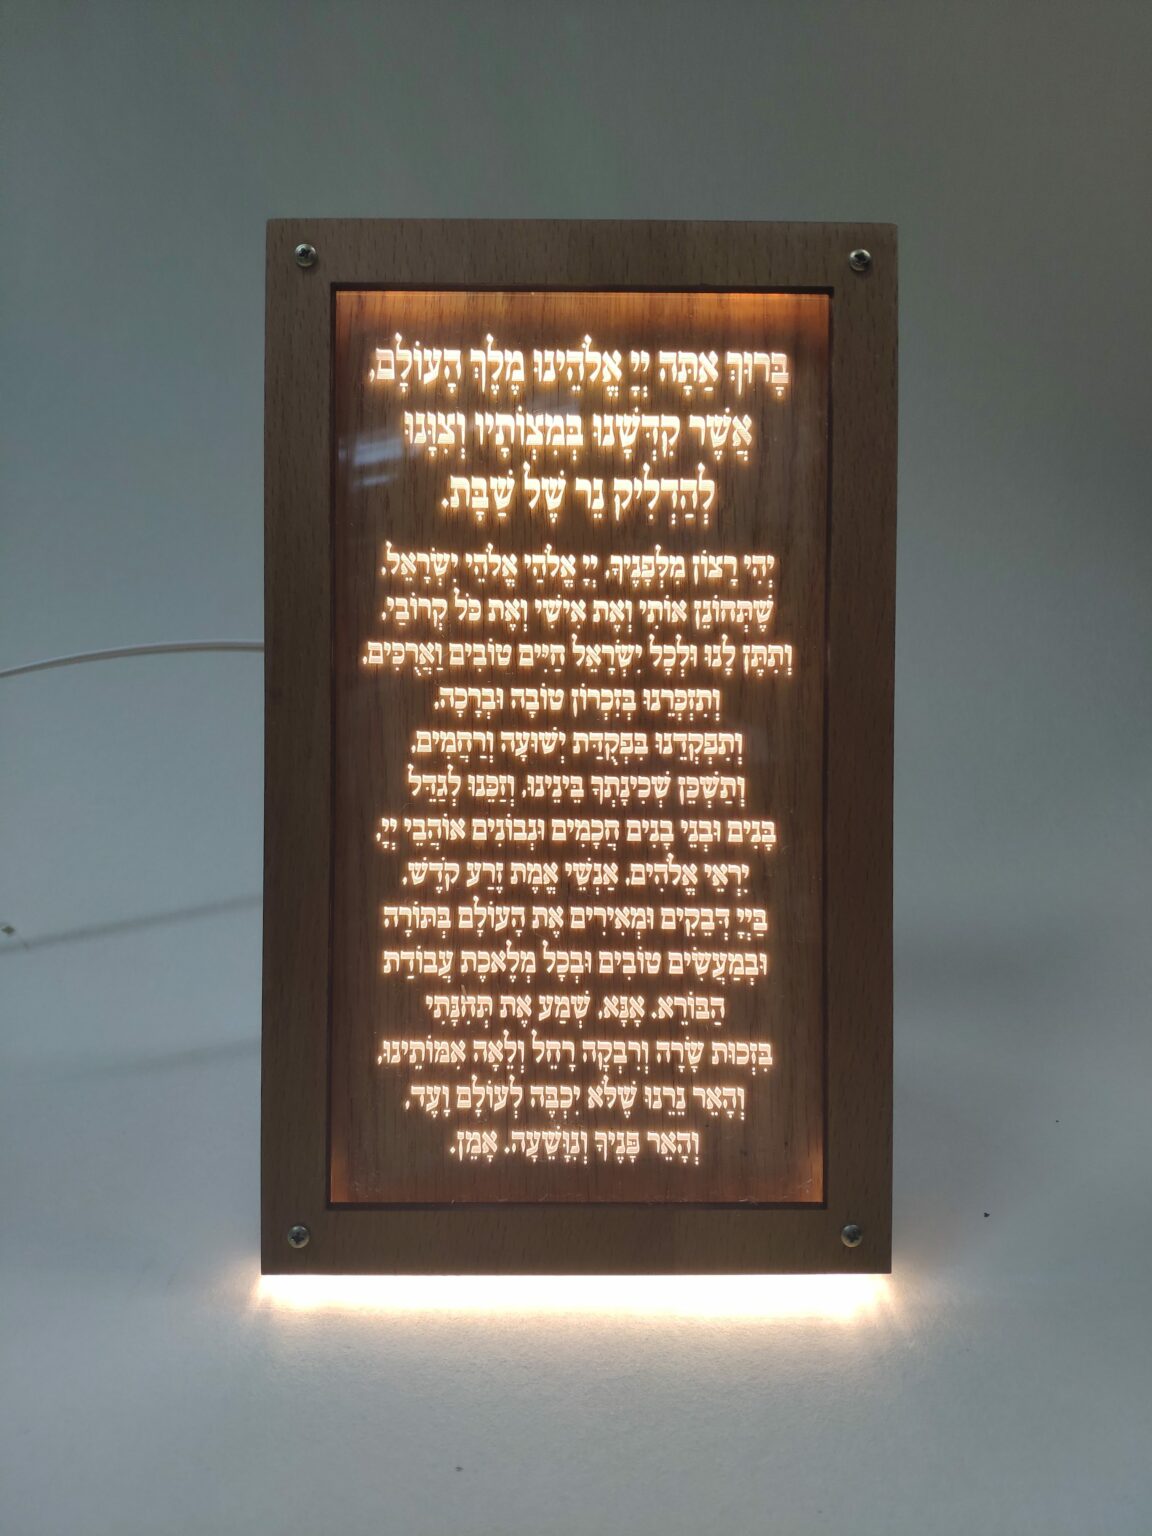 בָּרוּךְ אַתָּה יְיָ אֱלֹהֵינוּ מֶלֶךְ הָעוֹלָם,
אֲשֶׁר קִדְּשָׁנוּ בְּמִצְוֹתָיו וְצִוָּנוּ
לְהַדְלִיק נֵר שֶׁל שַׁבָּת.
יְהִי רָצוֹן מִלְּפָנֶיךָ, יְיָ אֱלֹהַי אֱלֹהֵי יִשְׂרָאֵל,
שֶׁתְּחוֹנֵן אוֹתִי וְאֶת אִישִׁי וְאֶת כֹּל קְרוֹבַי,
וְתִתֵּן לָנוּ וּלְכָל יִשְׂרָאֵל חַיִּים טוֹבִים וַאֲרֻכִּים,
וְתִזְכְּרֵנוּ בְּזִכְרוֹן טוֹבָה וּבְרָכָה,
וְתִפְקְדֵנוּ בִּפְקֻדַּת יְשׁוּעָה וְרַחֲמִים,
וְתַשְׁכֵּן שְׁכִינָתְךָ בֵּינֵינוּ, וְזַכֵּנוּ לְגַדֵּל
בָּנִים וּבְנֵי בָנִים חֲכָמִים וּנְבוֹנִים אוֹהֲבֵי יְיָ,
יִרְאֵי אֱלֹהִים, אַנְשֵׁי אֱמֶת זֶרַע קֹדֶשׁ,
בַּיְיָ דְּבֵקִים וּמְאִירִים אֶת הָעוֹלָם בְּתוֹרָה
וּבְמַעֲשִׂים טוֹבִים וּבְכָל מְלֶאכֶת עֲבוֹדַת
הַבּוֹרֵא. אָנָּא, שְׁמַע אֶת תְּחִנָּתִי
בִּזְכוּת שָׂרָה וְרִבְקָה רָחֵל וְלֵאָה אִמּוֹתֵינוּ,
וְהָאֵר נֵרֵנוּ שֶׁלֹּא יִכְבֶּה לְעוֹלָם וָעֶד,
וְהָאֵר פָּנֶיךָ וְנִוָּשֵׁעָה. אָמֵן.